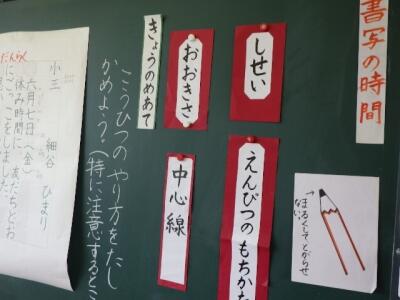 書写の時間
しせい
おおきさ
きょうのめあて
こうひつの やり方をたし
かめよう。(特に注意すると
えんぴつの もちかた
中心線
まるくして とがらせ
ない
だんらく
小三 細谷 ひまり
六月七日(金)
休み時間に、友だちとお
にごっこをしました。